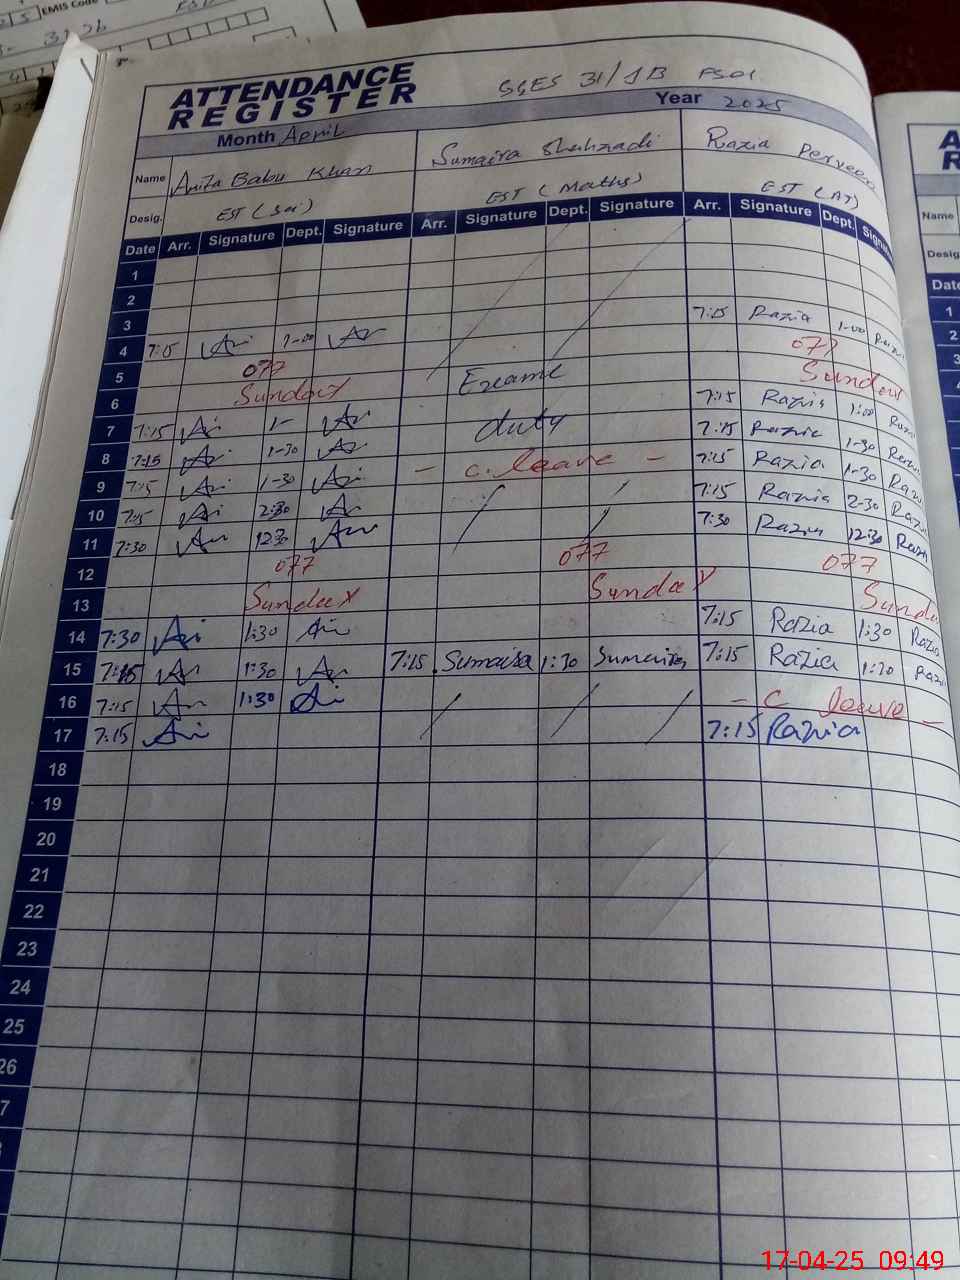 EMIS Code
ATTENDANCE
REGISTER
SGES 31/1B FS01
Month April
Year 2025
Name Anita Babu Khan Sumaira Shahzadi Razia Perveen
Desig. EST (Sci) EST (Maths) EST (AT)
Date Arr. Signature Dept. Signature Arr. Signature Dept. Signature Arr. Signature Dept.
1
2
3 7:15 Razia 1-00
4 7:15 1-00
5 Sunday Exame Sunday
6 7:15 Razia 1:00
7 7:15 1- duty 7:15 Razia 1-30
8 7:15 1-30 - C. leave - 7:15 Razia 1-30
9 7:15 1-30 7:15 Razia 2-30
10 7:15 2:30 7:30 Razia 12:30
11 7:30 12:30
12
13 Sunday Sunday
14 7:30 1:30 7:15 Razia 1:30 Razia
15 7:15 1:30 7:15 Sumaira 1:30 Sumaira 7:15 Razia 1:30
16 7:15 1:30 - C leave -
17 7:15 7:15 Razia
18
19
20
21
22
23
24
25
26
17-04-25 09:49